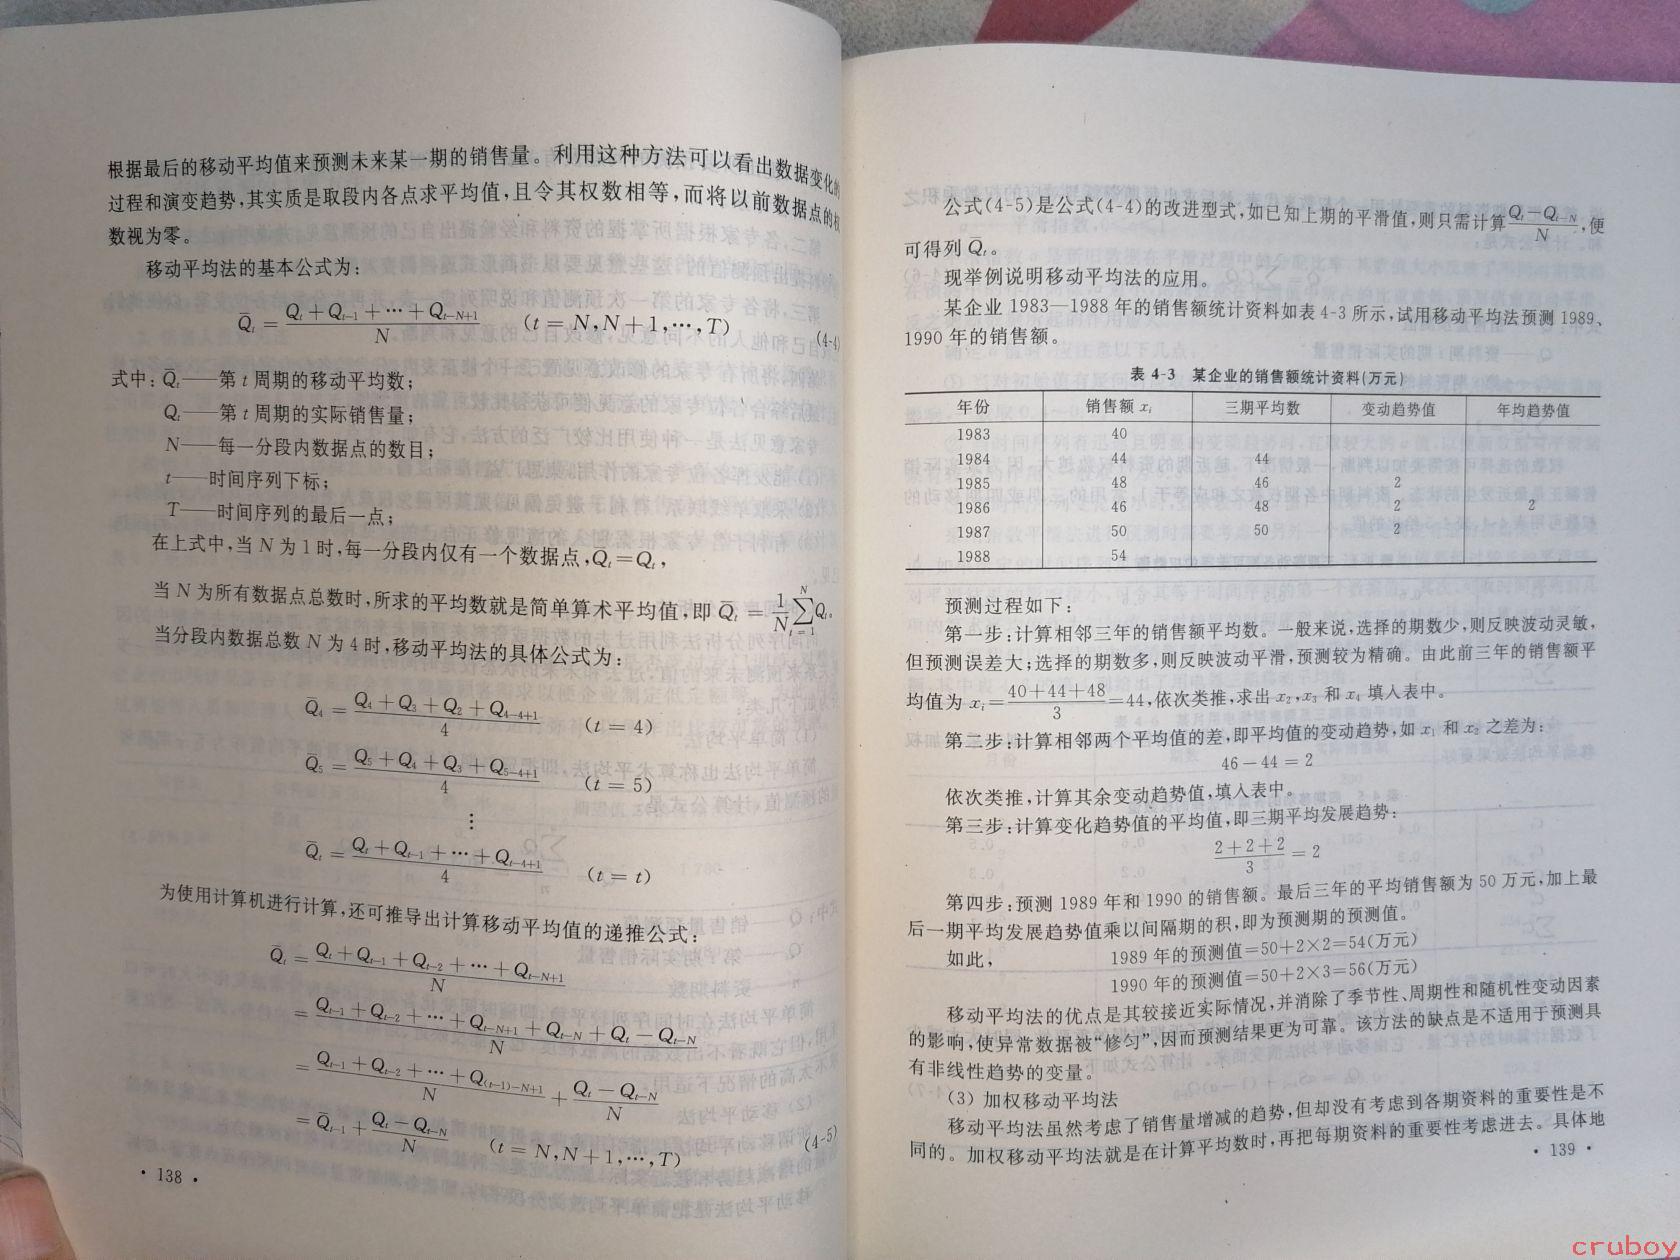 根据最后的移动平均值来预测未来某一期的销售量。利用这种方法可以看出数据变化的
过程和演变趋势,其实质是取段内各点求平均值,且令其权数相等,而将以前数据点的权
数视为零。
移动平均法的基本公式为:
Q̄ₜ = (Qₜ+Qₜ₋₁+⋯+Qₜ₋N₊₁)/N (t = N,N+1,⋯,T) (4-4)
式中: Q̄ₜ——第 t 周期的移动平均数;
Qₜ——第 t 周期的实际销售量;
N——每一分段内数据点的数目;
t——时间序列下标;
T——时间序列的最后一点;
在上式中,当 N 为 1 时,每一分段内仅有一个数据点,Q̄ₜ=Qₜ,
当 N 为所有数据点总数时,所求的平均数就是简单算术平均值,即 Qₜ = 1/N ∑(t=1..N) Qₜ。
当分段内数据总数 N 为 4 时,移动平均法的具体公式为:
Q̄₄ = (Q₄+Q₃+Q₂+Q₄₋₄₊₁)/4 (t = 4)
Q̄₅ = (Q₅+Q₄+Q₃+Q₅₋₄₊₁)/4 (t = 5)
⋮
Q̄ₜ = (Qₜ+Qₜ₋₁+⋯+Qₜ₋₄₊₁)/4 (t = t)
为使用计算机进行计算,还可推导出计算移动平均值的递推公式:
Q̄ₜ = (Qₜ+Qₜ₋₁+Qₜ₋₂+⋯+Qₜ₋N₊₁)/N
= (Qₜ₋₁+Qₜ₋₂+⋯+Qₜ₋N₊₁+Qₜ₋N+Qₜ−Qₜ₋N)/N
= (Qₜ₋₁+Qₜ₋₂+⋯+Q₍ₜ₋₁₎₋N₊₁)/N + (Qₜ−Qₜ₋N)/N
= Q̄ₜ₋₁ + (Qₜ−Qₜ₋N)/N (t = N,N+1,⋯,T) (4-5)
· 138 ·
公式(4-5)是公式(4-4)的改进型式,如已知上期的平滑值,则只需计算(Qₜ−Qₜ₋N)/N,便
可得列 Qₜ。
现举例说明移动平均法的应用。
某企业 1983—1988 年的销售额统计资料如表 4-3 所示,试用移动平均法预测 1989、
1990 年的销售额。
表 4-3 某企业的销售额统计资料(万元)
年份 销售额 xᵢ 三期平均数 变动趋势值 年均趋势值
1983 40
1984 44 44
1985 48 46 2
1986 46 48 2 2
1987 50 50 2
1988 54
预测过程如下:
第一步:计算相邻三年的销售额平均数。一般来说,选择的期数少,则反映波动灵敏,
但预测误差大;选择的期数多,则反映波动平滑,预测较为精确。由此前三年的销售额平
均值为 xᵢ=(40+44+48)/3=44,依次类推,求出 x₂,x₃ 和 x₄ 填入表中。
第二步:计算相邻两个平均值的差,即平均值的变动趋势,如 x₁ 和 x₂ 之差为:
46−44=2
依次类推,计算其余变动趋势值,填入表中。
第三步:计算变化趋势值的平均值,即三期平均发展趋势:
(2+2+2)/3 = 2
第四步:预测 1989 年和 1990 的销售额。最后三年的平均销售额为 50 万元,加上最
后一期平均发展趋势值乘以间隔期的积,即为预测期的预测值。
如此, 1989 年的预测值=50+2×2=54(万元)
1990 年的预测值=50+2×3=56(万元)
移动平均法的优点是其较接近实际情况,并消除了季节性、周期性和随机性变动因素
的影响,使异常数据被“修匀”,因而预测结果更为可靠。该方法的缺点是不适用于预测具
有非线性趋势的变量。
(3) 加权移动平均法
移动平均法虽然考虑了销售量增减的趋势,但却没有考虑到各期资料的重要性是不
同的。加权移动平均法就是在计算平均数时,再把每期资料的重要性考虑进去。具体地
· 139 ·
cruboy